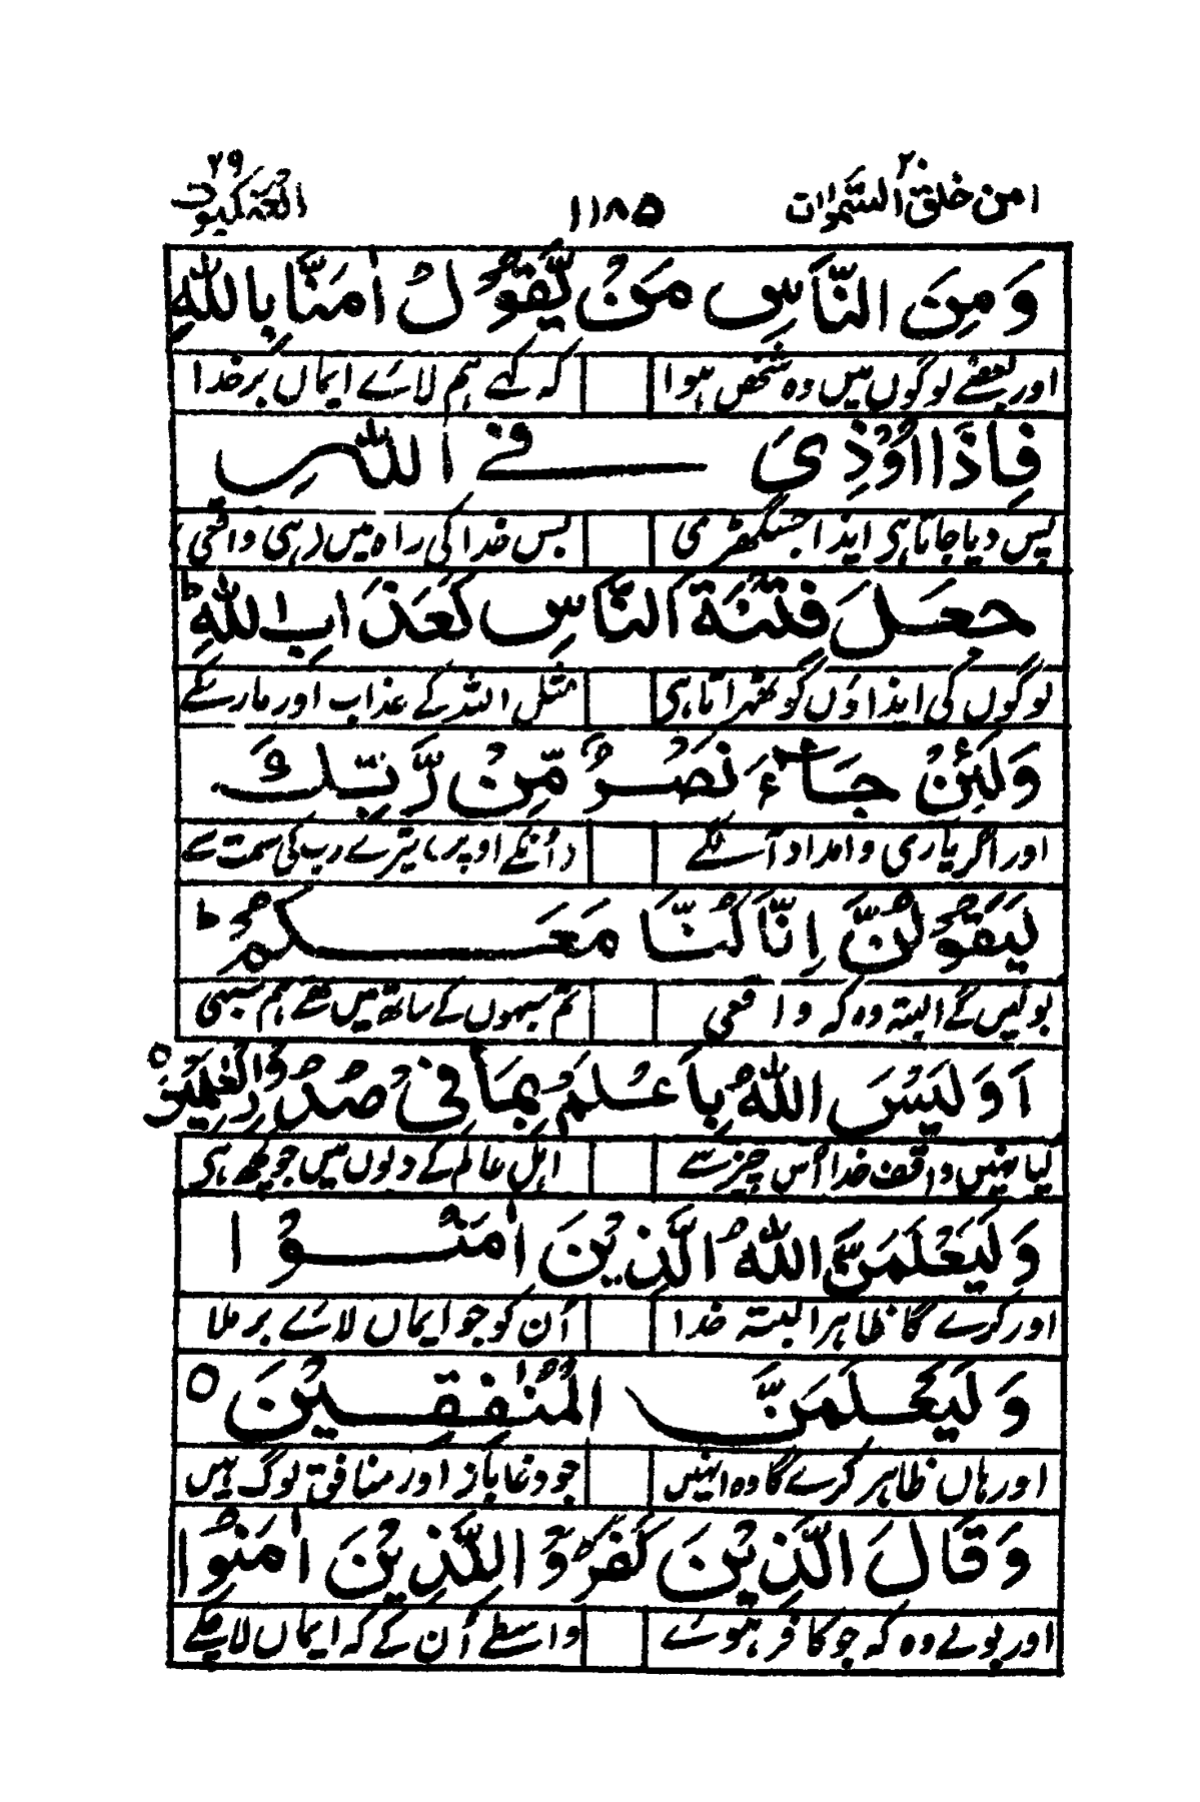 امن خلق السموات ٢٠ ١١٨٥ العنكبوت ٢٩
وَمِنَ النَّاسِ مَنْ يَّقُوْلُ اٰمَنَّا بِاللّٰهِ
اور بعضے لوگوں میں وہ شخص ہوا کہ کہے ہم لائے ایماں بر خدا
فَاِذَا اُوْذِىَ فِے اللّٰهِ
پس دیا جاتا ہی ایذا جسگھڑی بس خدا کی راہ میں وہی واقعی
جَعَلَ فِتْنَةَ النَّاسِ كَعَذَابِ اللّٰهِ ؕ
لوگوں کی ایذاؤں کو ٹھہراتا ہی مثل اللہ کے عذاب اور مار کے
وَلَئِنْ جَآءَ نَصْرٌ مِّنْ رَّبِّكَ
اور اگر یاری و امداد آسکے اُنکے اوپر تیرے رب کی سمت سے
لَيَقُوْلُنَّ اِنَّا كُنَّا مَعَكُمْ ؕ
بولیں گے البتہ وہ کہ واقعی تم سبھوں کے ساتھ میں تھے ہم سبھی
اَوَلَيْسَ اللّٰهُ بِاَعْلَمَ بِمَا فِىْ صُدُوْرِ الْعٰلَمِيْنَ ۝
کیا نہیں واقف خدا اُس چیز سے اہل عالم کے دلوں میں جو کچھ ہی
وَلَيَعْلَمَنَّ اللّٰهُ الَّذِيْنَ اٰمَنُوْا
اور کرے گا ظاہر البتہ خدا اُن کو جو ایماں لائے بر ملا
وَلَيَعْلَمَنَّ الْمُنٰفِقِيْنَ ۝
اور ہاں ظاہر کرے گا وہ انہیں جو دغا باز اور منافق لوگ ہیں
وَقَالَ الَّذِيْنَ كَفَرُوْا لِلَّذِيْنَ اٰمَنُوْا
اور بولے وہ کہ جو کافر ہوئے واسطے اُن کے کہ ایماں لا چکے